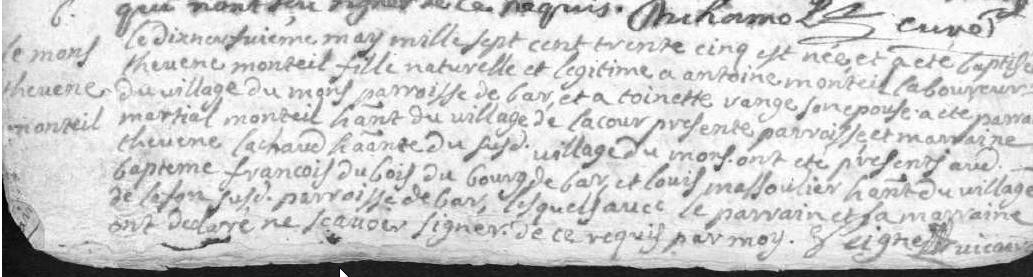 qui n'ont sçu signer de ce requis. curé
le mons
thevene
monteil
le dixneufvieme may mille sept cent trente cinq est née et a été baptisée
thevene monteil fille naturelle et legitime a antoine monteil laboureur
du village du mons parroisse de bar, et a toinette vange son epouse a été parra
martial monteil haant du village de lacour presente parroisse et marraine
thevene lachaud haante du susd. village du mons. ont été presents aud.
bapteme francois dubois du bourg de bar, et louis massoulier haant du village
de susd. parroisse de bar, lesquels avec le parrain et la marraine
ont declaré ne scavoir signer. de ce requis par moy. vicaire